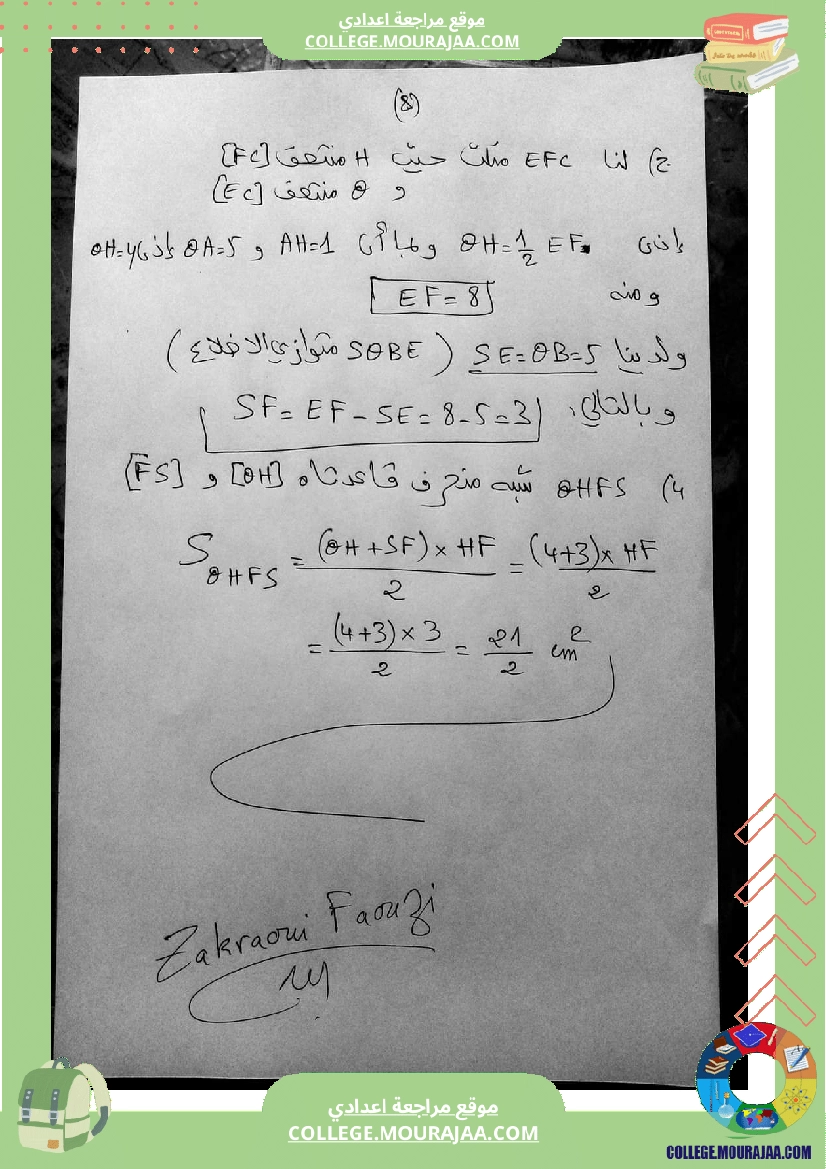 موقع مراجعة اعدادي
COLLEGE.MOURAJAA.COM
(8)
ج) لنا EFC مثلث حيث H منتصف [FC]
و θ منتصف [EC]
إذن θH = 1/2 EF وبما أن AH=1 و θA=5 إذن θH=4
ومنه EF=8
ولدينا SE=θB=5 (SθBE متوازي الاضلاع)
وبالتالي، SF = EF - SE = 8 - 5 = 3
4) θHFS شبه منحرف قاعدتاه [θH] و [FS]
S θHFS = (θH + SF) × HF / 2 = (4+3) × HF / 2
= (4+3) × 3 / 2 = 21/2 cm²
Zakraoui Faouzi
موقع مراجعة اعدادي
COLLEGE.MOURAJAA.COM
COLLEGE.MOURAJAA.COM